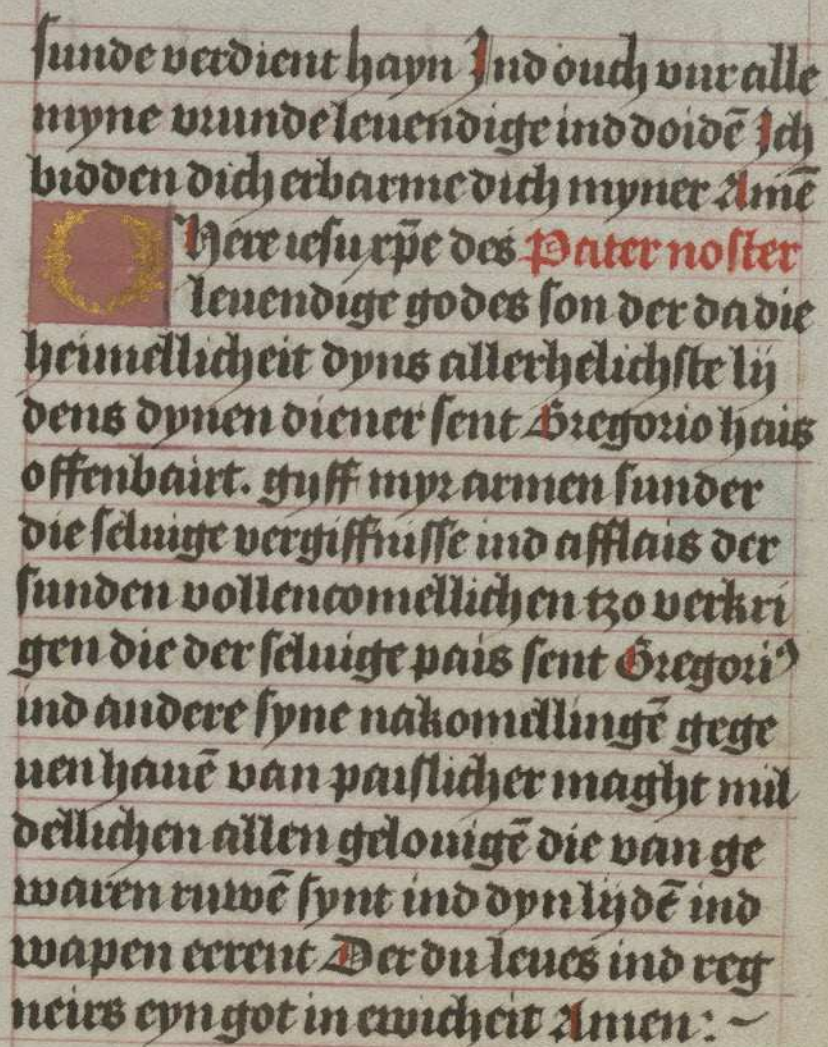 sunde verdient hayn Ind ouch vur alle
myne vrunde leuendige ind doidē Ich
bidden dich erbarme dich myner Amē
O here iesu xp̄e des Pater noster
leuendige godes son der da die
heimellicheit dyns allerhelichste lij
dens dynen diener sent Gregorio hais
offenbairt. gyff myr armen sunder
die seluige vergiffnisse ind afflais der
sunden vollencomellichen tzo verkri
gen die der seluige pais sent Gregoriꝰ
ind andere syne nakomellingē gege
uen hauē van paislicher maght mil
dellichen allen gelouigē die van ge
waren ruwē synt ind dyn lijdē ind
wapen eerent Der du leues ind reg
neirs eyn got in ewicheit Amen: ~